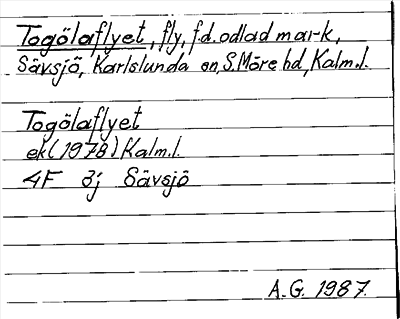 Togölaflyet, fly, f.d. odlad mark,
Sävsjö, Karlslunda sn, S. Möre hd, Kalm. l.
Togölaflyet
ek (1978) Kalm. l.
4F 3j Sävsjö
A.G. 1987.